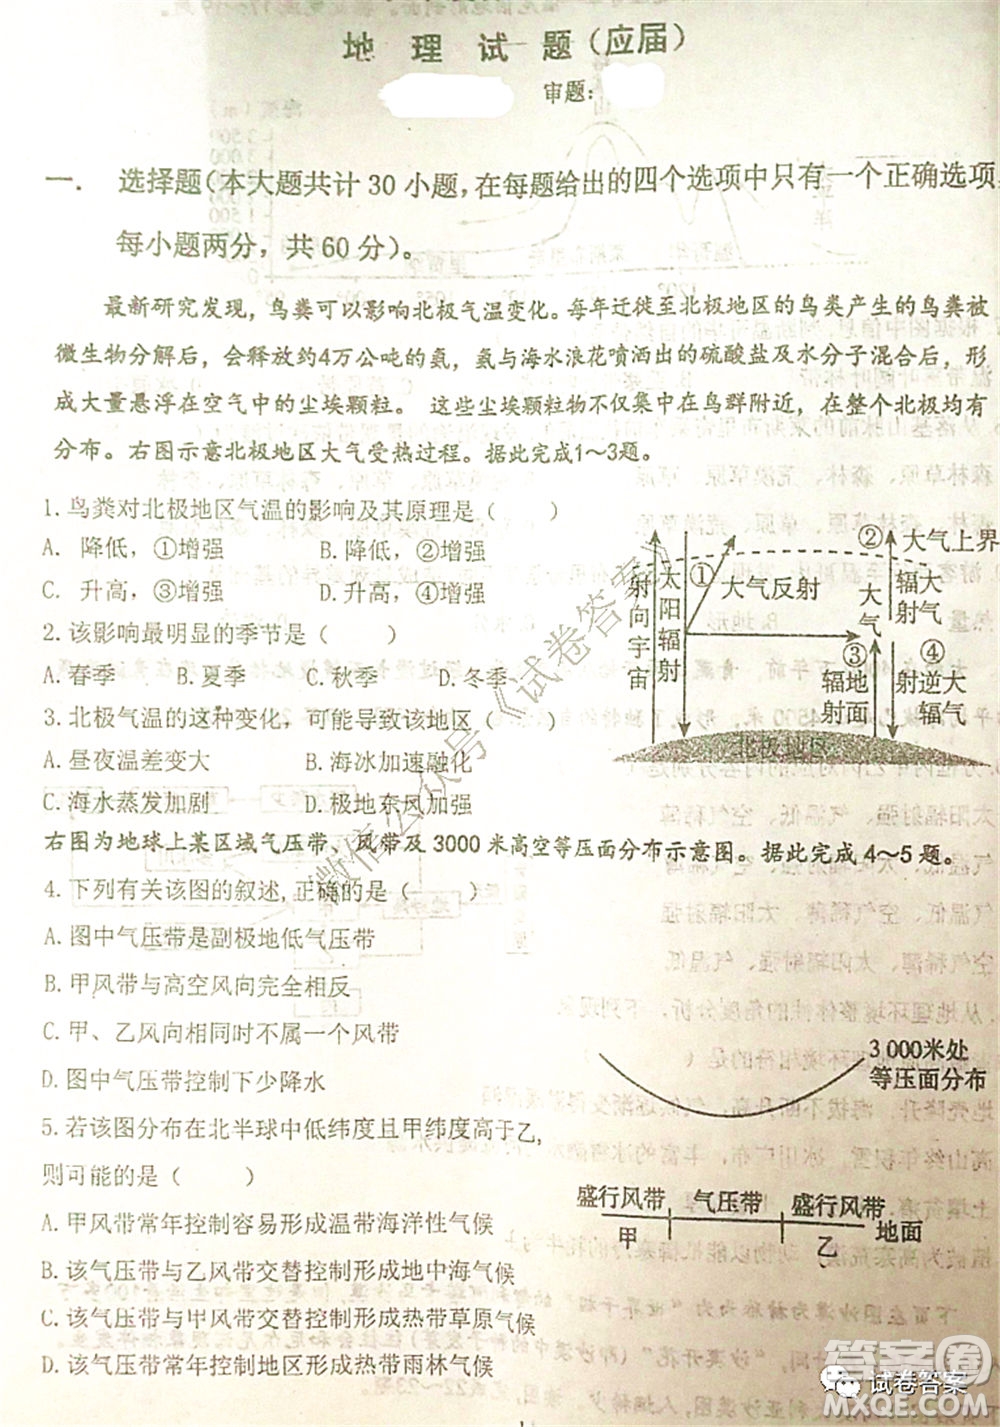 地 理 试 题（应届）
审题：
一. 选择题（本大题共计 30 小题，在每题给出的四个选项中只有一个正确选项，
每小题两分，共 60 分）。
最新研究发现，鸟粪可以影响北极气温变化。每年迁徙至北极地区的鸟类产生的鸟粪被
微生物分解后，会释放约4万公吨的氨，氨与海水浪花喷洒出的硫酸盐及水分子混合后，形
成大量悬浮在空气中的尘埃颗粒。 这些尘埃颗粒物不仅集中在鸟群附近，在整个北极均有
分布。右图示意北极地区大气受热过程。据此完成1～3题。
1.鸟粪对北极地区气温的影响及其原理是（ ）
A. 降低，①增强 B.降低，②增强
C. 升高，③增强 D.升高，④增强
2.该影响最明显的季节是（ ）
A.春季 B.夏季 C.秋季 D.冬季
3.北极气温的这种变化，可能导致该地区（ ）
A.昼夜温差变大 B.海冰加速融化
C.海水蒸发加剧 D.极地东风加强
射向宇宙
太阳辐射
①
大气反射
②
大气上界
大气
辐射
大气
③
地面
辐射
④
大气
逆辐射
北极地区
右图为地球上某区域气压带、风带及 3000 米高空等压面分布示意图。据此完成 4～5 题。
4.下列有关该图的叙述,正确的是（ ）
A.图中气压带是副极地低气压带
B.甲风带与高空风向完全相反
C.甲、乙风向同时不属一个风带
D.图中气压带控制下少降水
3 000米处
等压面分布
5.若该图分布在北半球中低纬度且甲纬度高于乙,
则可能的是（ ）
A.甲风带常年控制容易形成温带海洋性气候
B.该气压带与乙风带交替控制形成地中海气候
C.该气压带与甲风带交替控制形成热带草原气候
D.该气压带常年控制地区形成热带雨林气候
盛行风带 气压带 盛行风带
甲 乙 地面
微信公众号《试卷答案》
答案圈
试卷答案
MXQE.COM
1